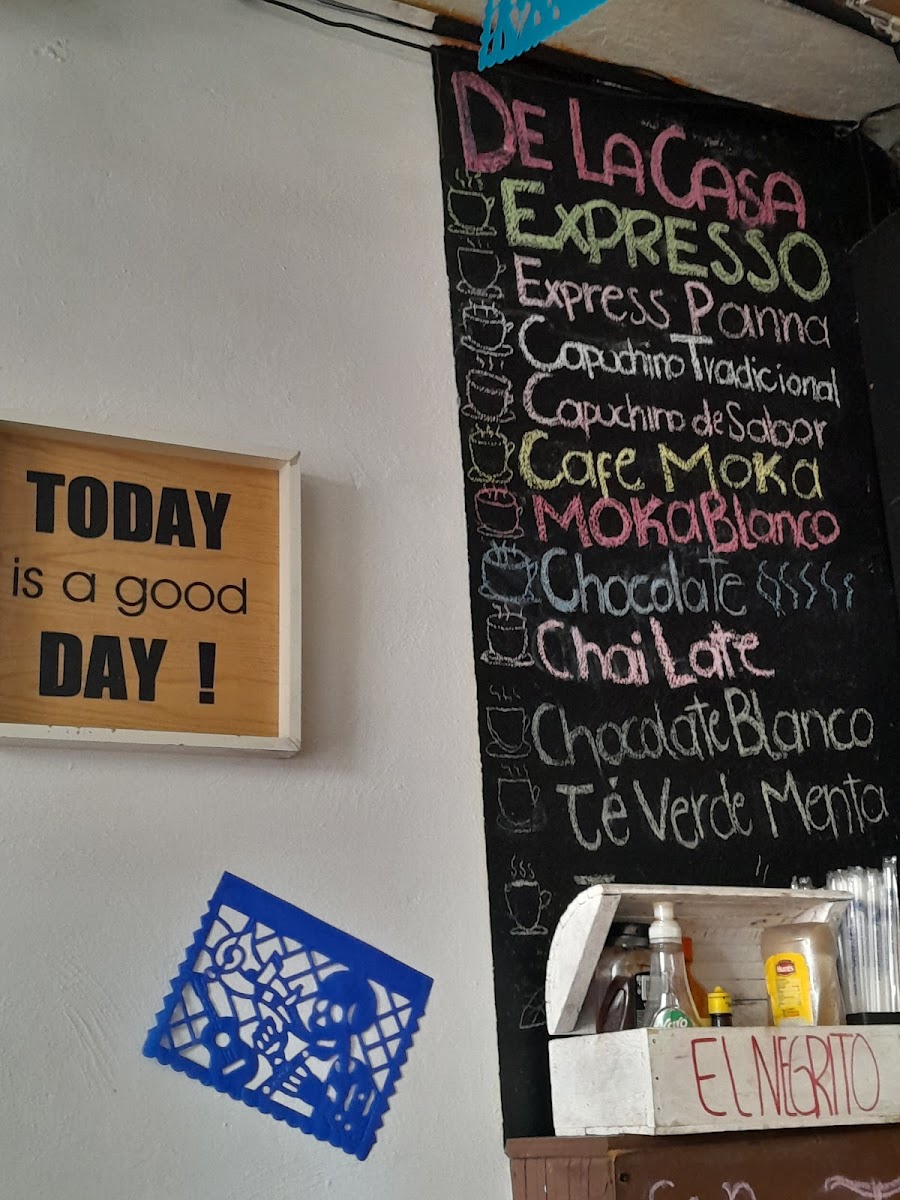 DE LA CASA
EXPRESSO
Express Panna
Capuchino Tradicional
Capuchino de Sabor
Cafe Moka
MOKA Blanco
Chocolate
Chai Late
Chocolate Blanco
Té Verde Menta
TODAY
is a good
DAY !
Hunt's
EL NEGRITO